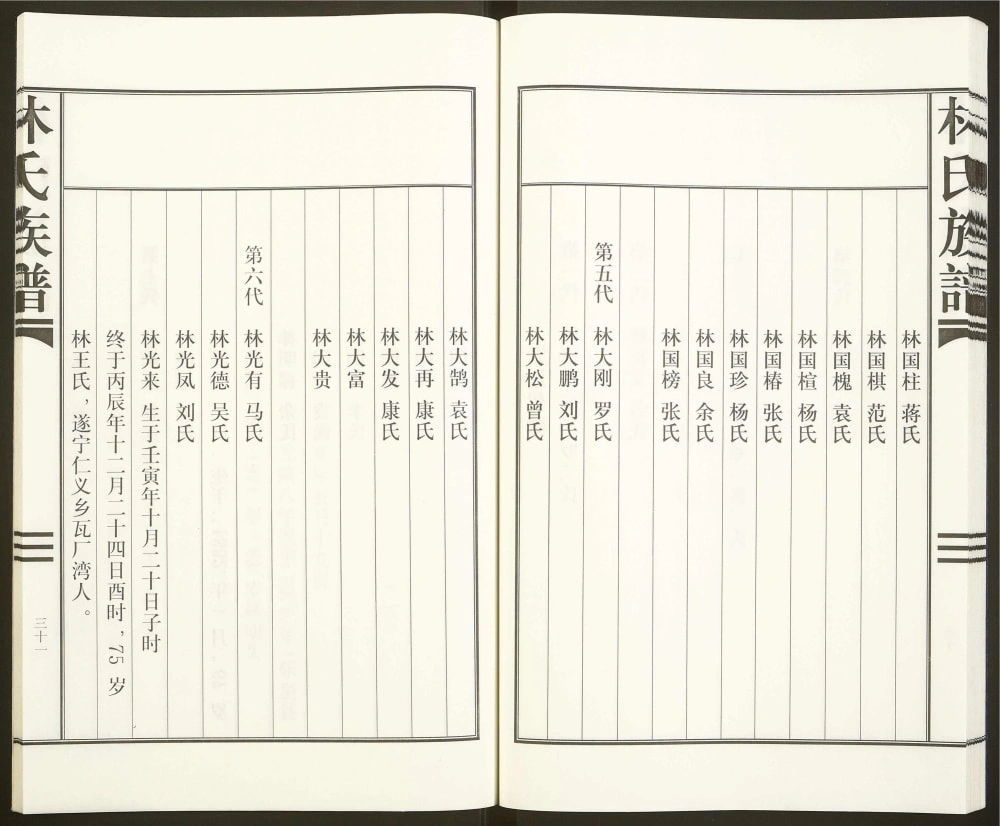 林氏族谱
林国柱 蒋氏
林国棋 范氏
林国槐 袁氏
林国楦 杨氏
林国椿 张氏
林国珍 杨氏
林国良 余氏
林国榜 张氏
第五代 林大刚 罗氏
林大鹏 刘氏
林大松 曾氏
林大鹄 袁氏
林大再 康氏
林大发 康氏
林大富
林大贵
第六代 林光有 马氏
林光德 吴氏
林光凤 刘氏
林光来 生于壬寅年十月二十日子时
终于丙辰年十二月二十四日酉时，75岁
林王氏，遂宁仁义乡瓦厂湾人。
林氏族谱
三十一